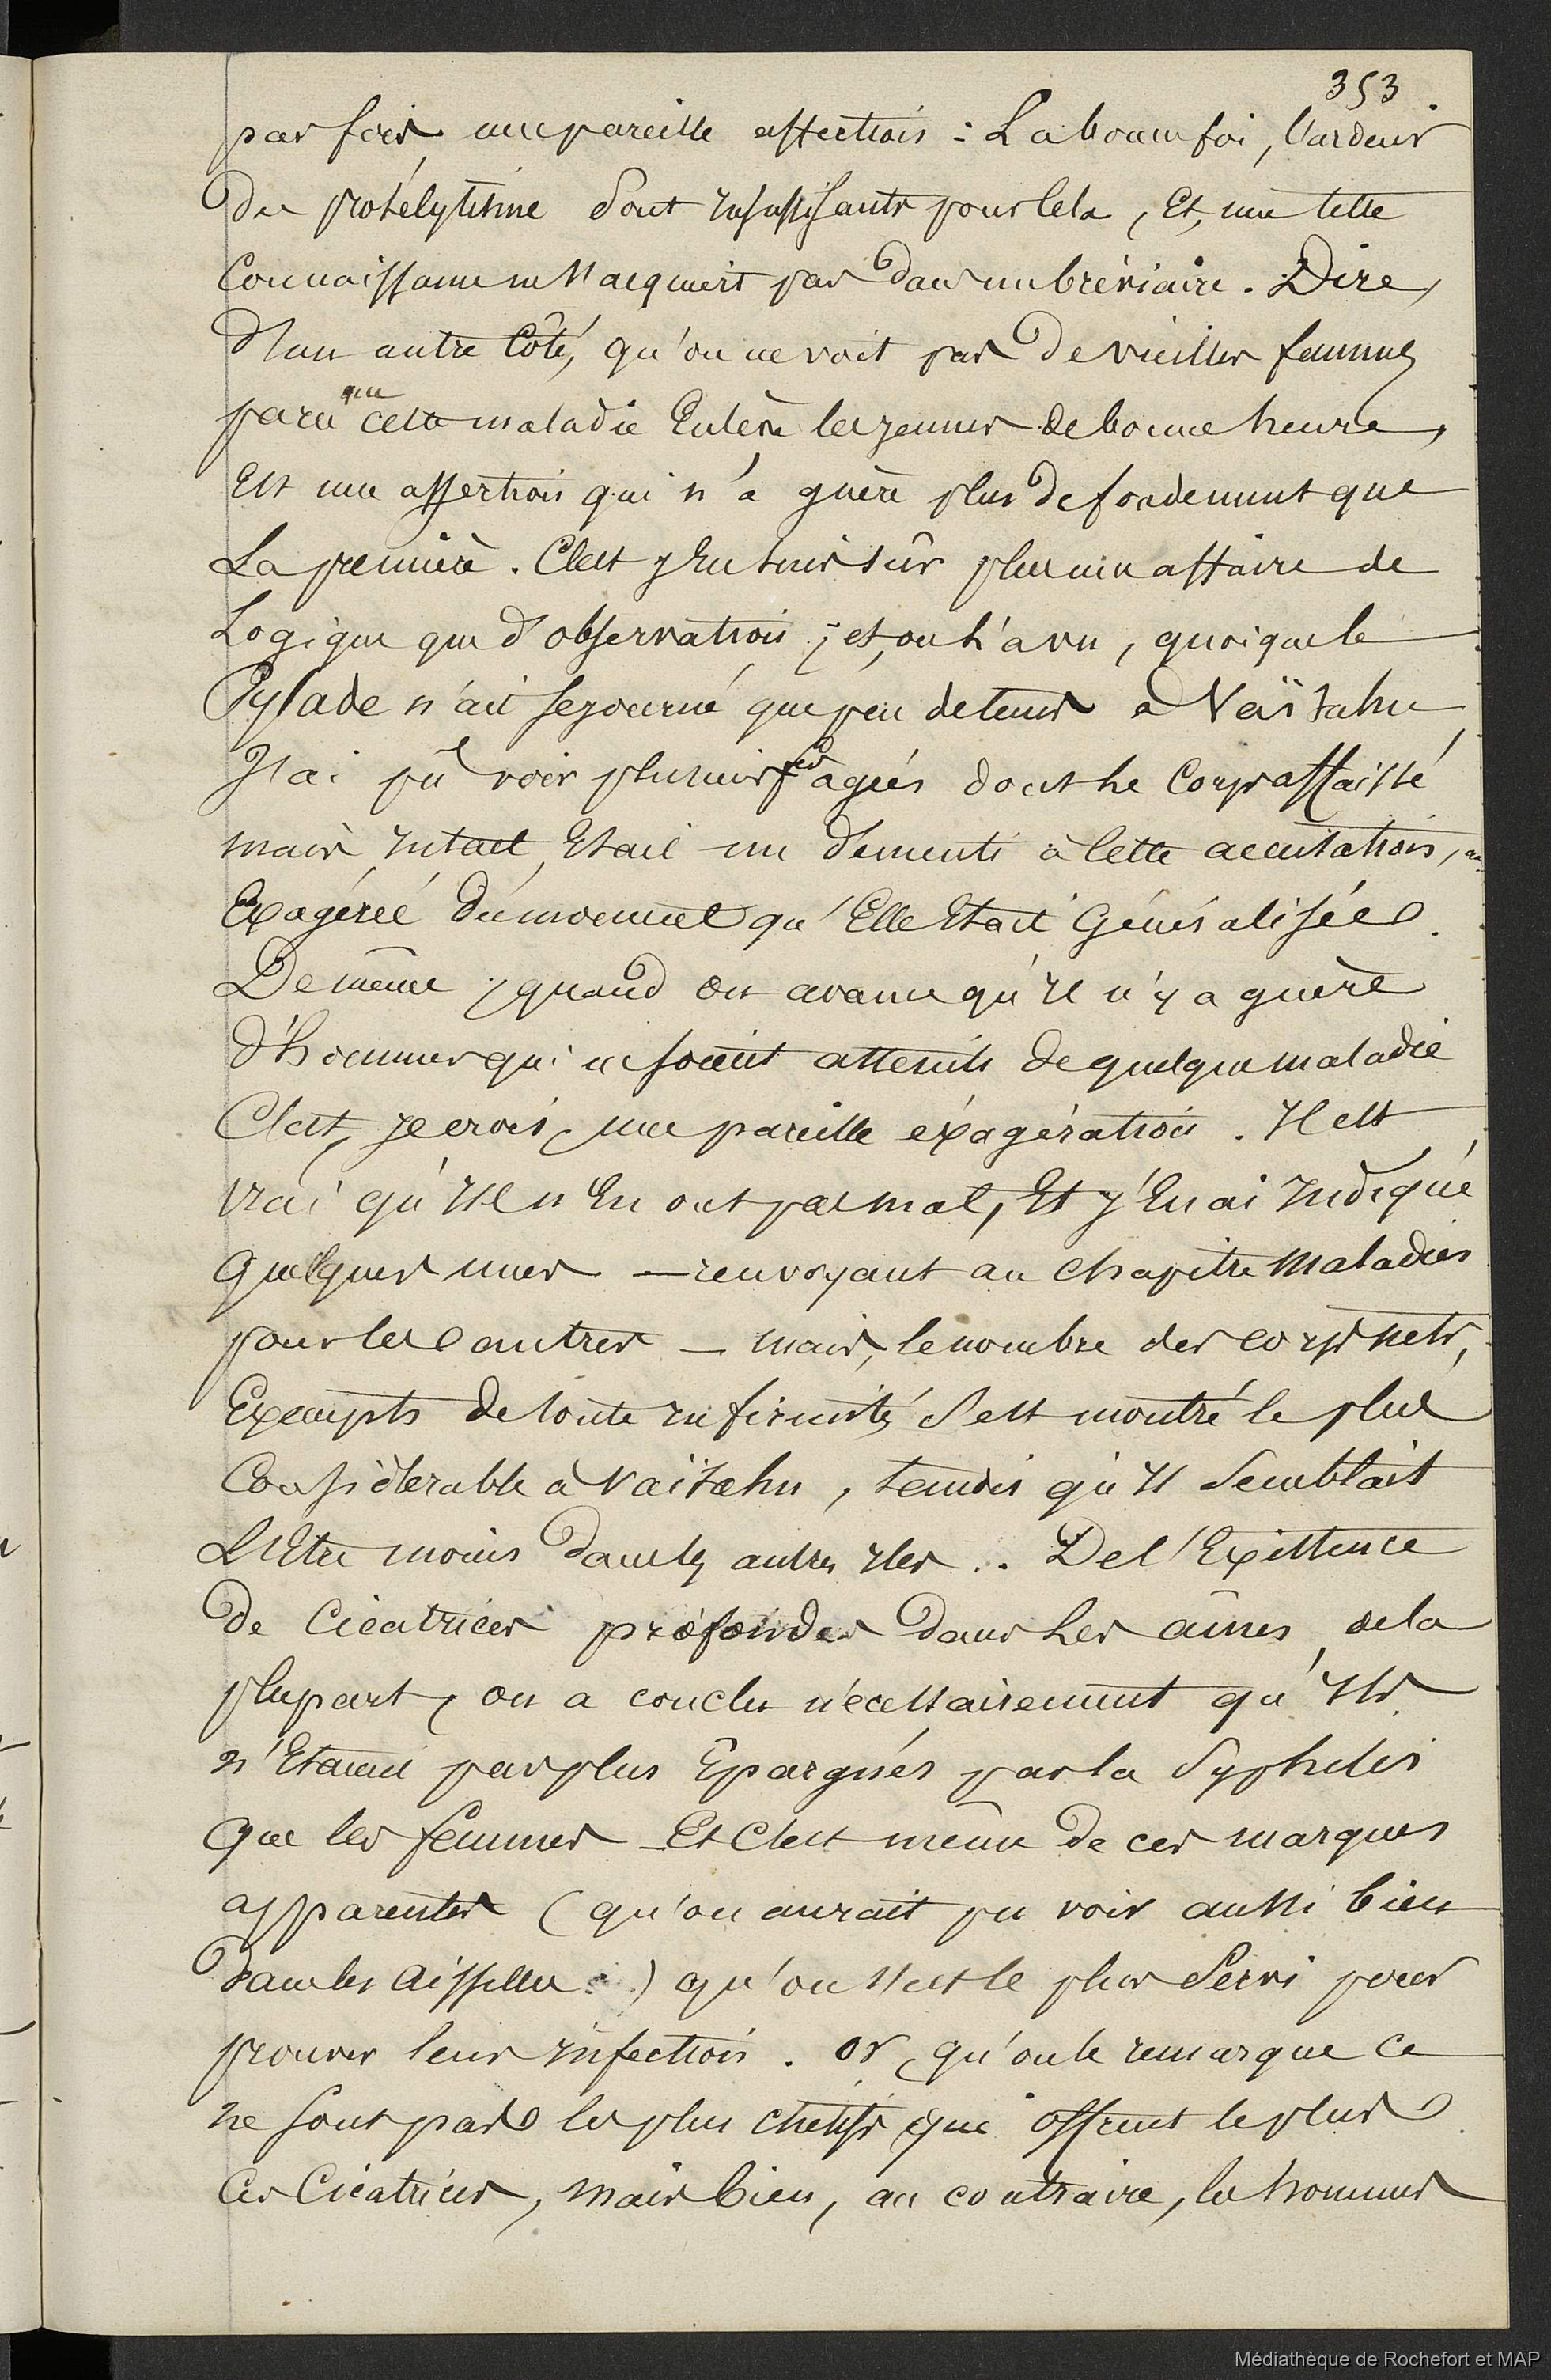 353
parfois une pareille affection : La bonne foi, l'ardeur
du prosélytisme sont insuffisants pour cela, Et, une telle
Connaissance ne s'acquiert pas dans un bréviaire. Dire,
d'un autre Côté, qu'on ne voit pas de vieilles femmes
parce que cette maladie Enlève les jeunes de bonne heure,
Est une assertion qui n'a guère plus de fondement que
La première. C'est j'en suis sûr plus une affaire de
Logique que d'observation ; et, on l'a vu, quoique le
Pylade n'ait séjourné que peu de temps à Vaïtahu
J'ai pû voir plusieurs fes agées dont le Corps affaissé
mais intact, Etait un démenti à cette accusation,
Exagéréé dumoment qu'Elle Etait Généralisée.
De même, quand on avance qu'il n'y a guère
d'hommes qui ne soient atteints de quelque maladie
C'est, je crois, une pareille éxagération. Il est
vrai qu'Ils n'En ont pas mal, Et j'En ai Indiqué
quelques unes — renvoyant au chapitre maladies
pour les autres — mais, le nombre des corps nets,
Exempts de toute infirmité, s'est montré le plus
Considérable à Vaitahu, tandis qu'Il semblait
L'Etre moins dans les autres Iles .. De l'Existence
de Cicatrices profondes dans les aînes de la
plupart, on a conclu nécessairement qu'Ils
n'Etaient pas plus Epargnés par la Syphilis
que les femmes — Et C'est même de ces marques
apparentes (qu'on aurait pu voir aussi bien
dans les aisselles) qu'on s'est le plus Servi pour
prouver leur infection. or, qu'on le remarque ce
ne sont pas les plus chétifs que offrent le plus
Ces Cicatrices, mais bien, au contraire, les hommes
Médiathèque de Rochefort et MAP